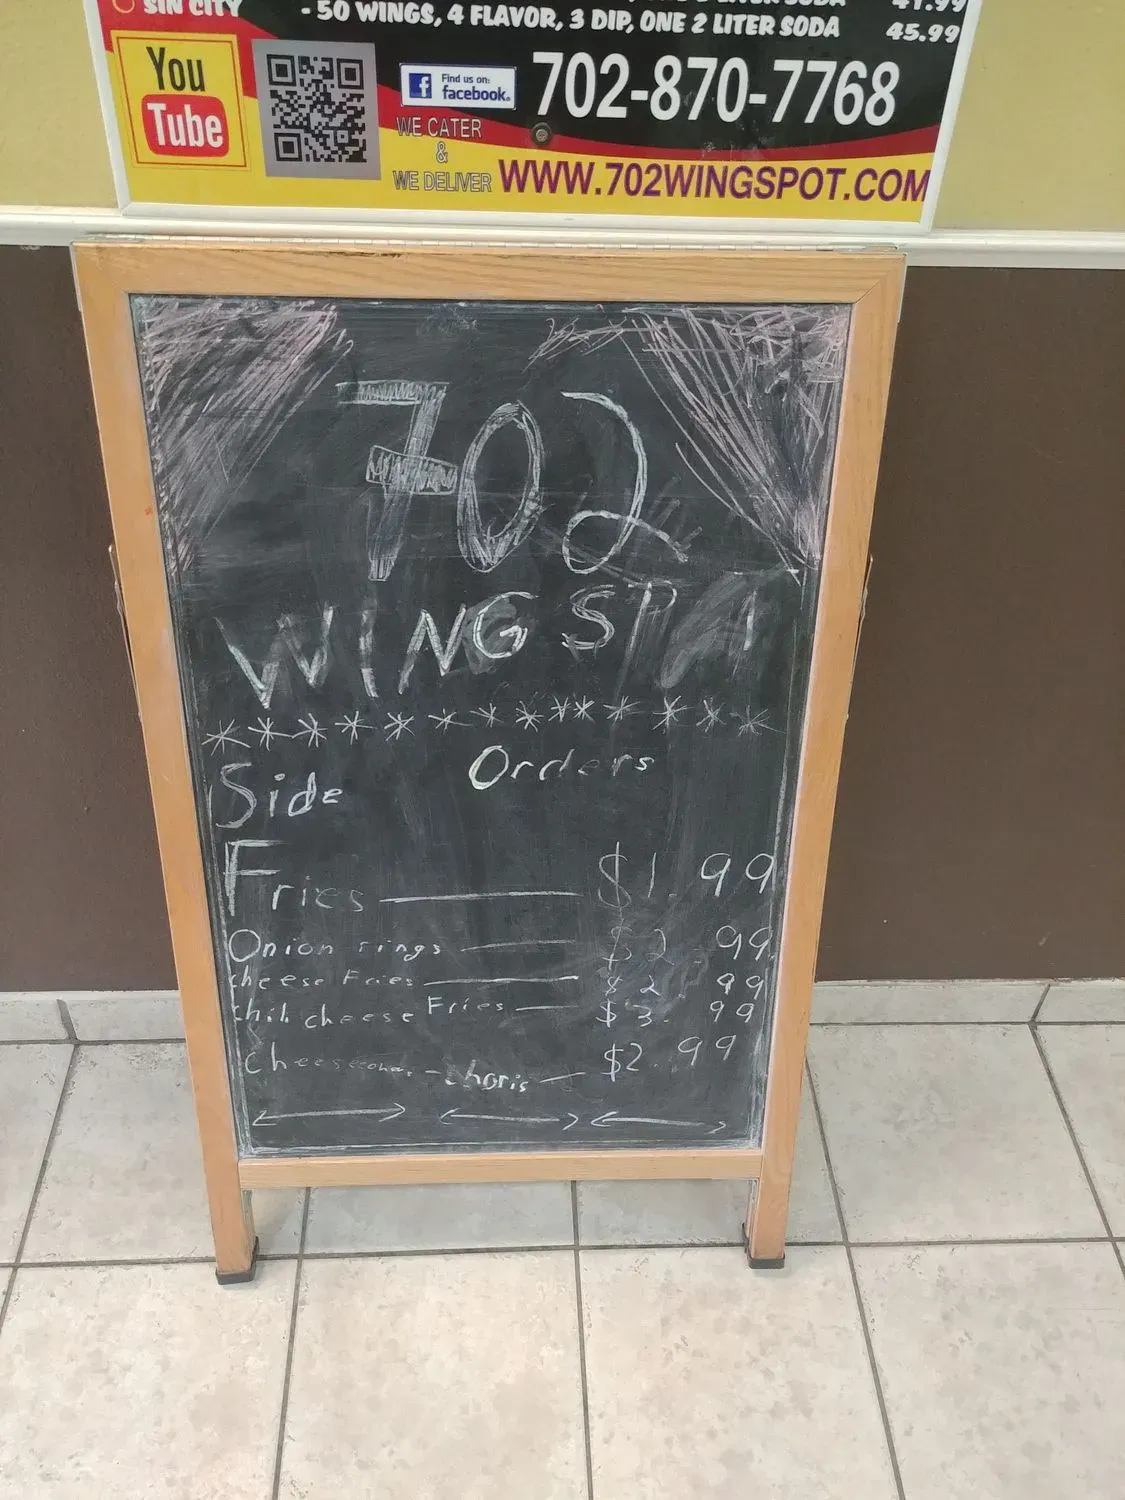 SIN CITY
41.99
- 50 WINGS, 4 FLAVOR, 3 DIP, ONE 2 LITER SODA 45.99
You
Tube
Find us on:
facebook.
702-870-7768
WE CATER
&
WE DELIVER
WWW.702WINGSPOT.COM
702
WING SP
Side Orders
Fries $1.99
Onion rings $2.99
cheese Fries $2.99
chili cheese Fries $3.99
$2.99